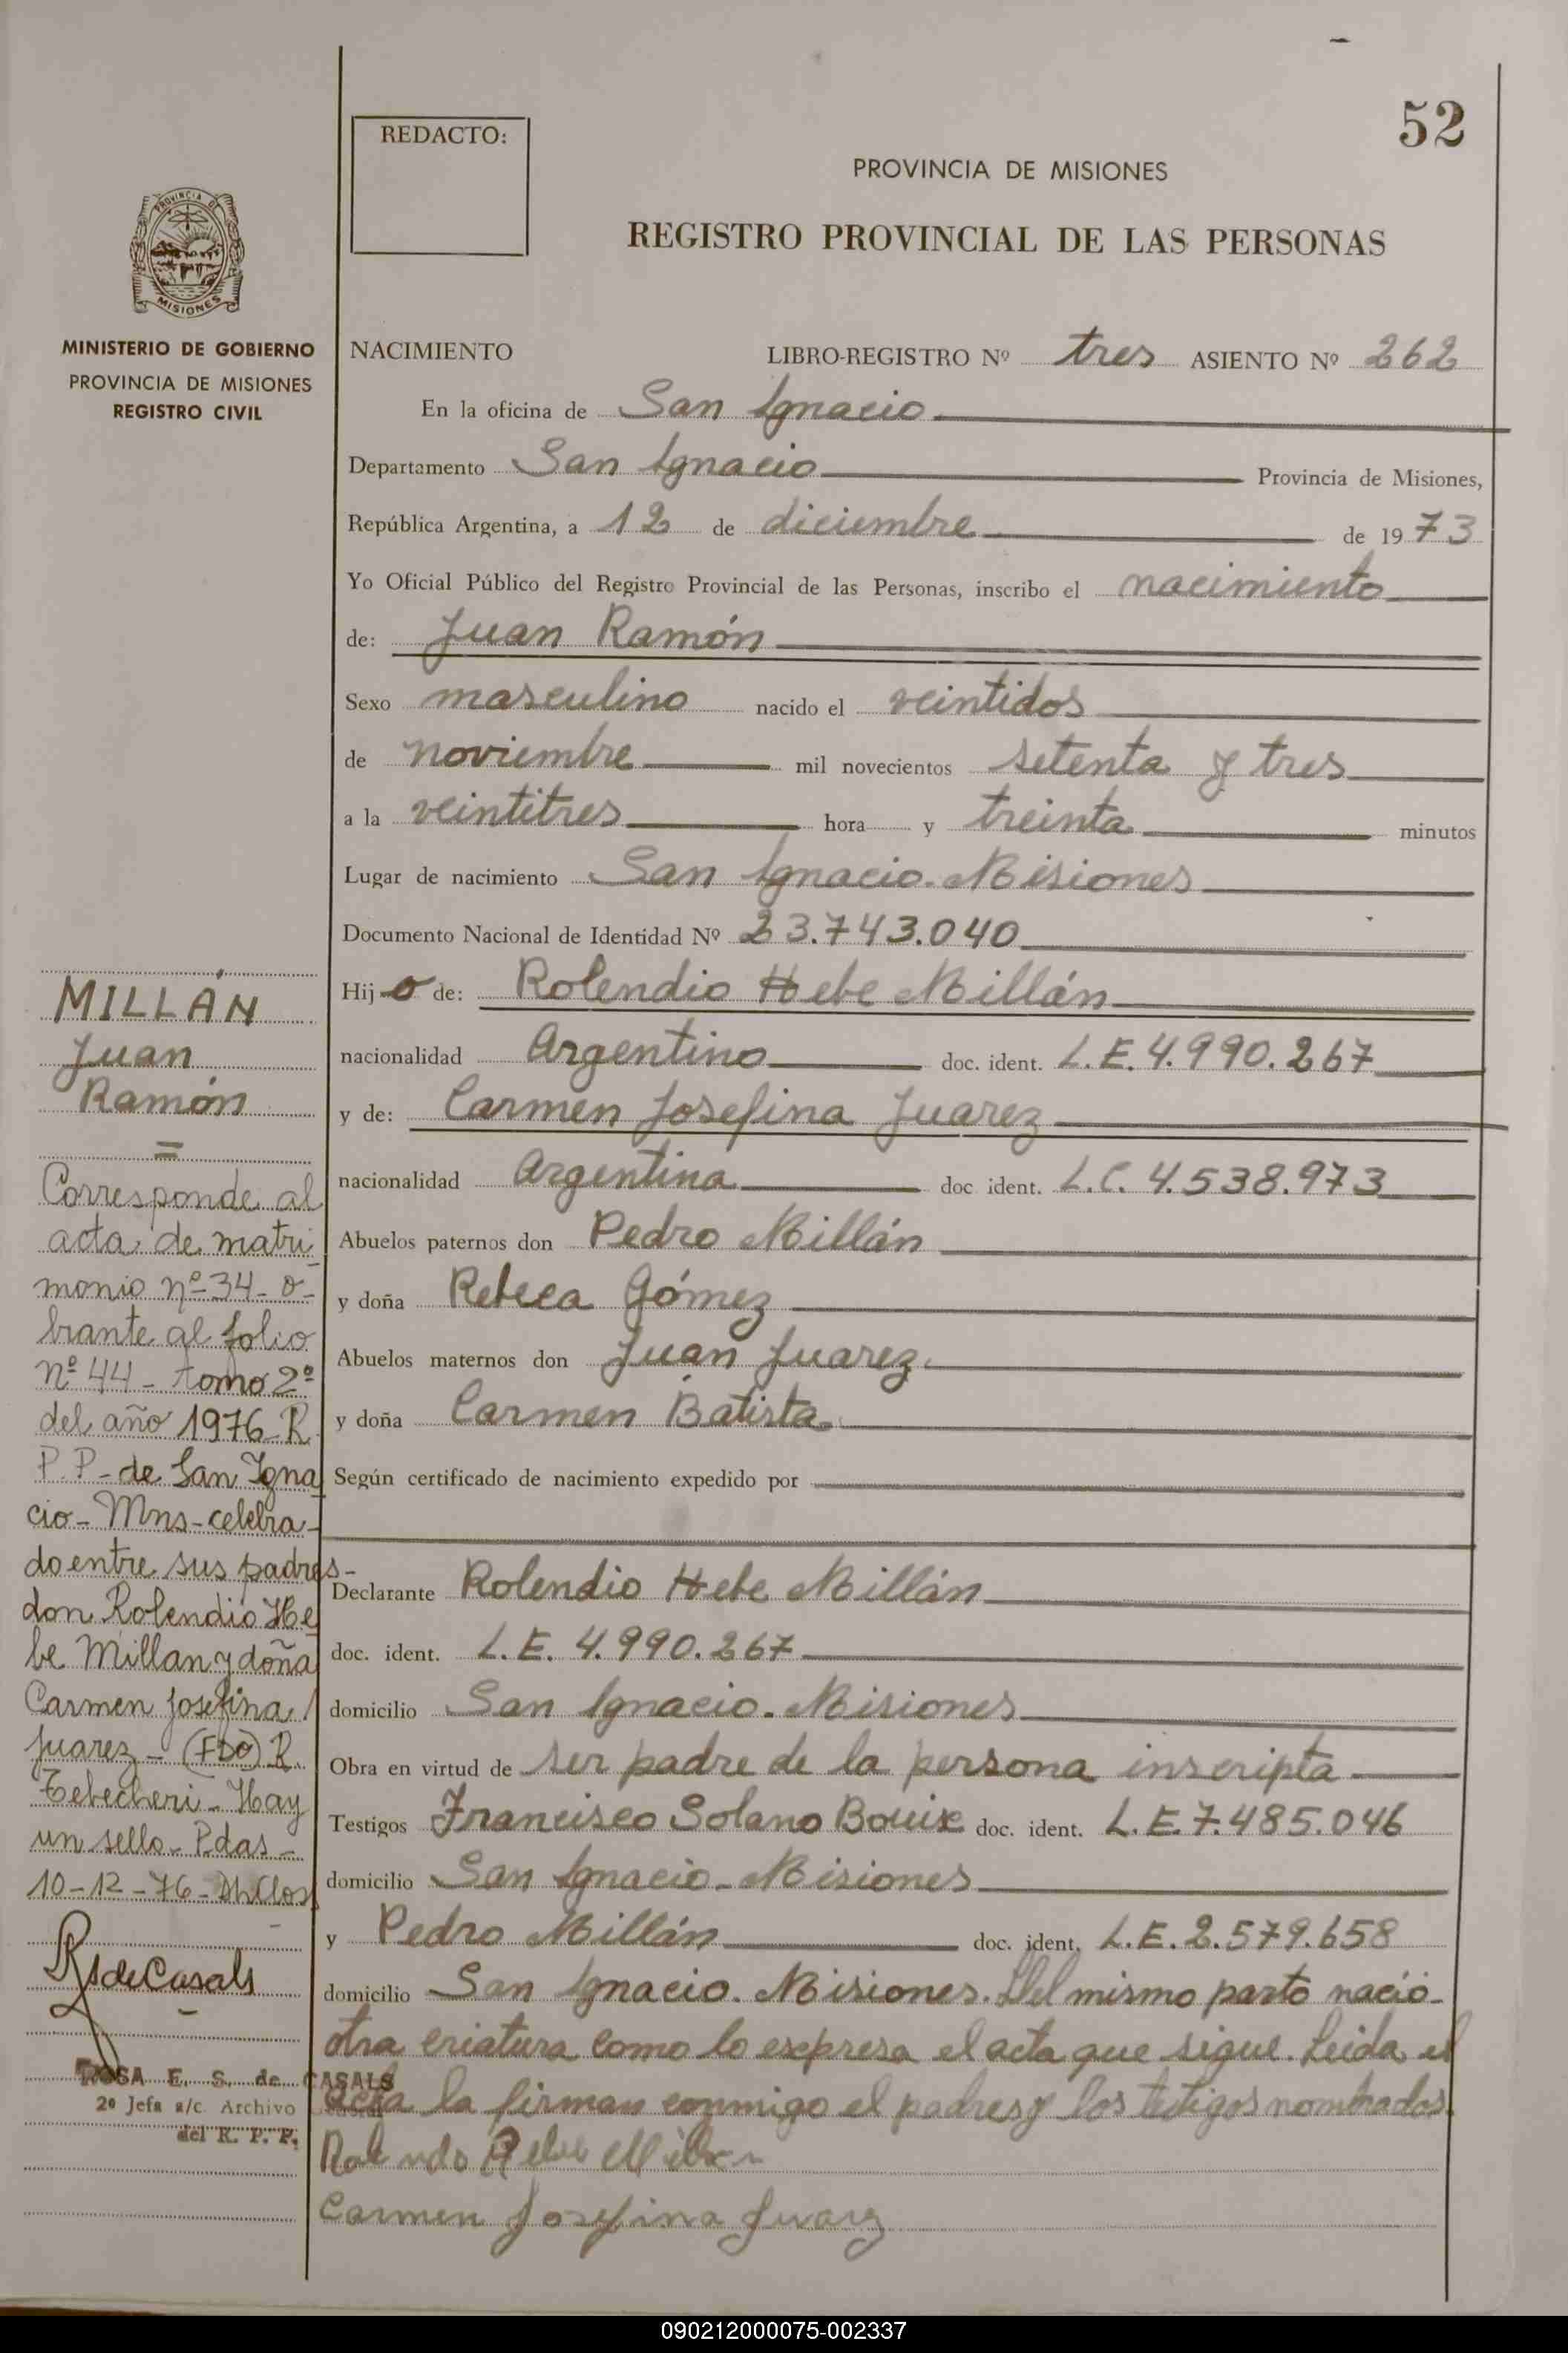 52
REDACTO:
PROVINCIA DE MISIONES
REGISTRO PROVINCIAL DE LAS PERSONAS
PROVINCIA DE
MISIONES
MINISTERIO DE GOBIERNO
PROVINCIA DE MISIONES
REGISTRO CIVIL
NACIMIENTO LIBRO-REGISTRO Nº tres ASIENTO Nº 262
En la oficina de San Ignacio
Departamento San Ignacio Provincia de Misiones,
República Argentina, a 12 de diciembre de 1973
Yo Oficial Público del Registro Provincial de las Personas, inscribo el nacimiento
de: Juan Ramón
Sexo masculino nacido el veintidos
de noviembre mil novecientos setenta y tres
a la veintitres hora y treinta minutos
Lugar de nacimiento San Ignacio. Misiones
Documento Nacional de Identidad Nº 23.743.040
Hijo de: Rolendio Hebe Millán
nacionalidad Argentino doc. ident. L.E. 4.990.267
y de: Carmen Josefina Juarez
nacionalidad Argentina doc ident. L.C. 4.538.973
Abuelos paternos don Pedro Millán
y doña Rebeca Gómez
Abuelos maternos don Juan Juarez.
y doña Carmen Batista.
Según certificado de nacimiento expedido por
Declarante Rolendio Hebe Millán
doc. ident. L.E. 4.990.267
domicilio San Ignacio. Misiones
Obra en virtud de ser padre de la persona inscripta
Testigos Francisco Solano Bouix doc. ident. L.E. 7.485.046
domicilio San Ignacio. Misiones
y Pedro Millán doc. ident. L.E. 2.579.658
domicilio San Ignacio. Misiones. Del mismo parto nació
otra criatura como lo expresa el acta que sigue. Leida el
acta la firman conmigo el padres y los testigos nombrados.
Carmen Josefina Juarez
MILLÁN
Juan
Ramón
=
Corresponde al
acta de matri
monio nº 34- o-
brante al folio
nº 44- tomo 2º
del año 1976 R.
P.P- de San Igna
cio- Mns- celebra-
do entre sus padres-
don Rolendio He
be Millan y doña
Carmen Josefina
Juarez- (FDO) R.
Tebecheri- Hay
un sello- Pdas-
10-12-76-
RSdeCasals
ROSA E. S. de CASALS
2º Jefa a/c. Archivo
del R. P. P.
090212000075-002337